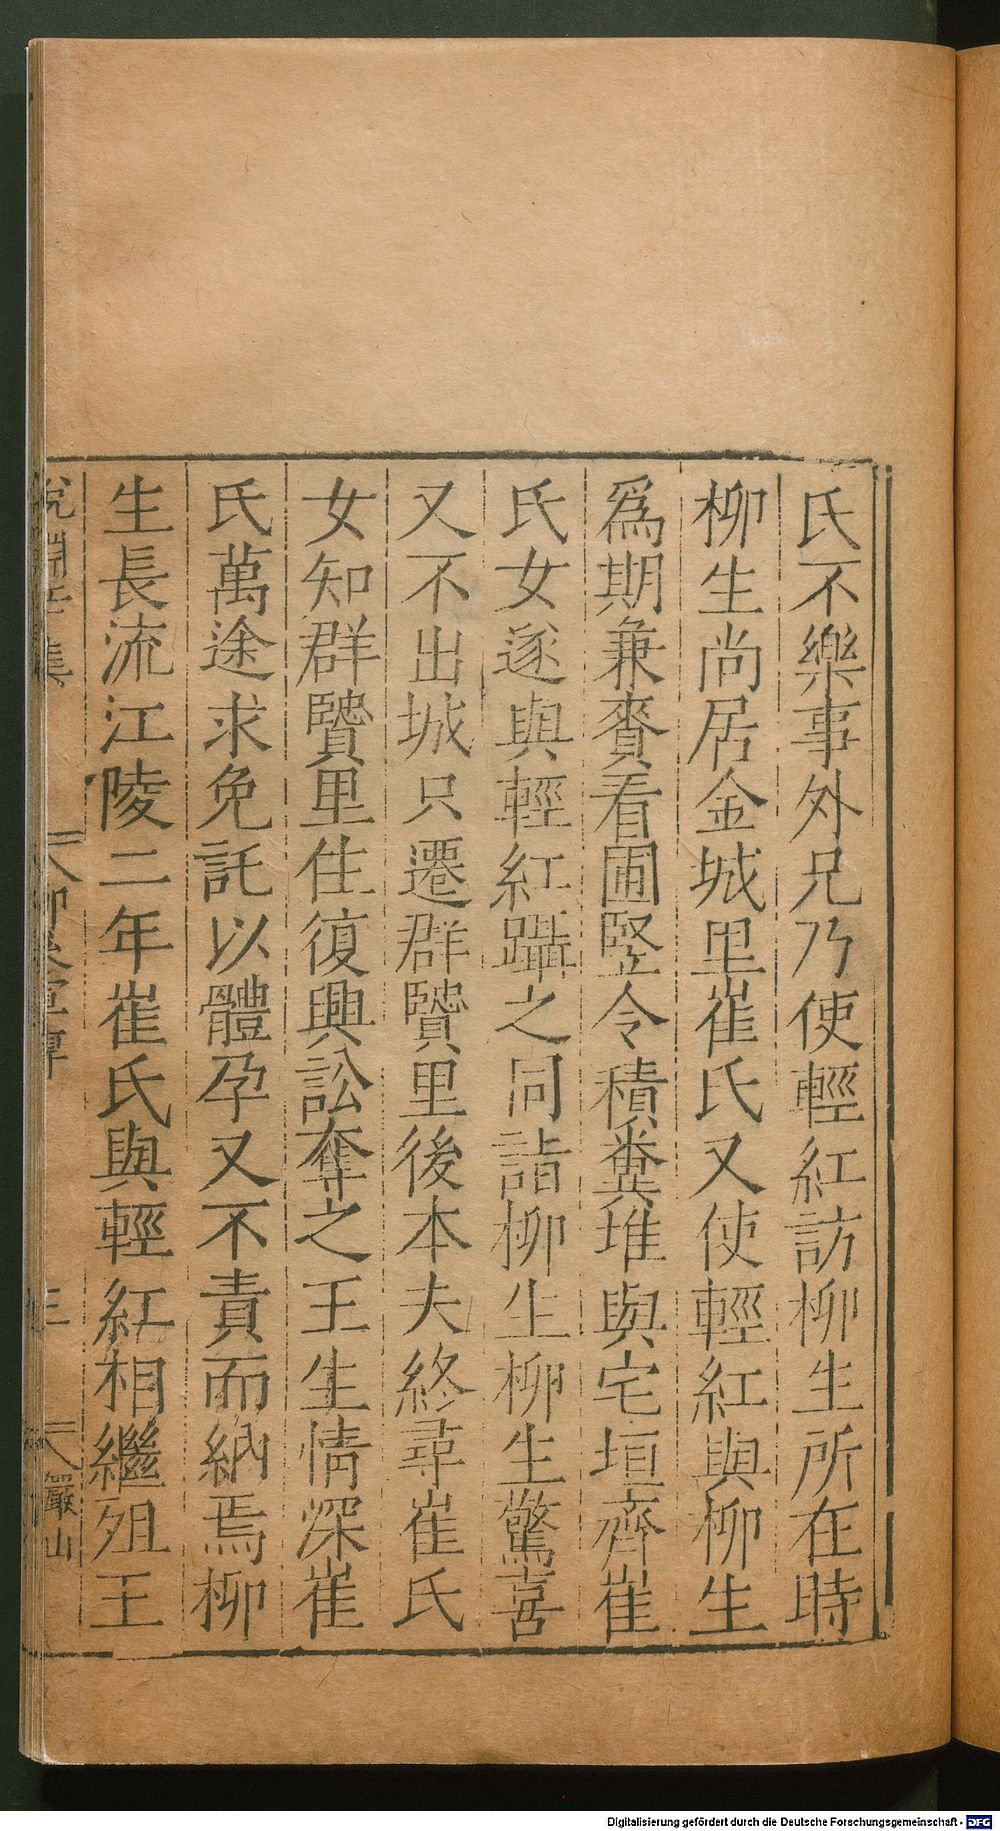 氏不樂事外兄乃使輕紅訪柳生所在時
柳生尚居金城里崔氏又使輕紅與柳生
爲期兼賚看圃竪令積糞堆與宅垣齊崔
氏女遂與輕紅躡之同詣柳生柳生驚喜
又不出城只遷群賢里後本夫終尋崔氏
女知群賢里住復興訟奪之王生情深崔
氏萬途求免託以體孕又不責而納焉柳
生長流江陵二年崔氏與輕紅相繼殂王
說淵
三
Digitalisierung gefördert durch die Deutsche Forschungsgemeinschaft - DFG